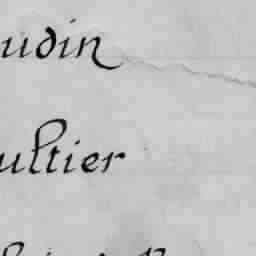 udin
ultier